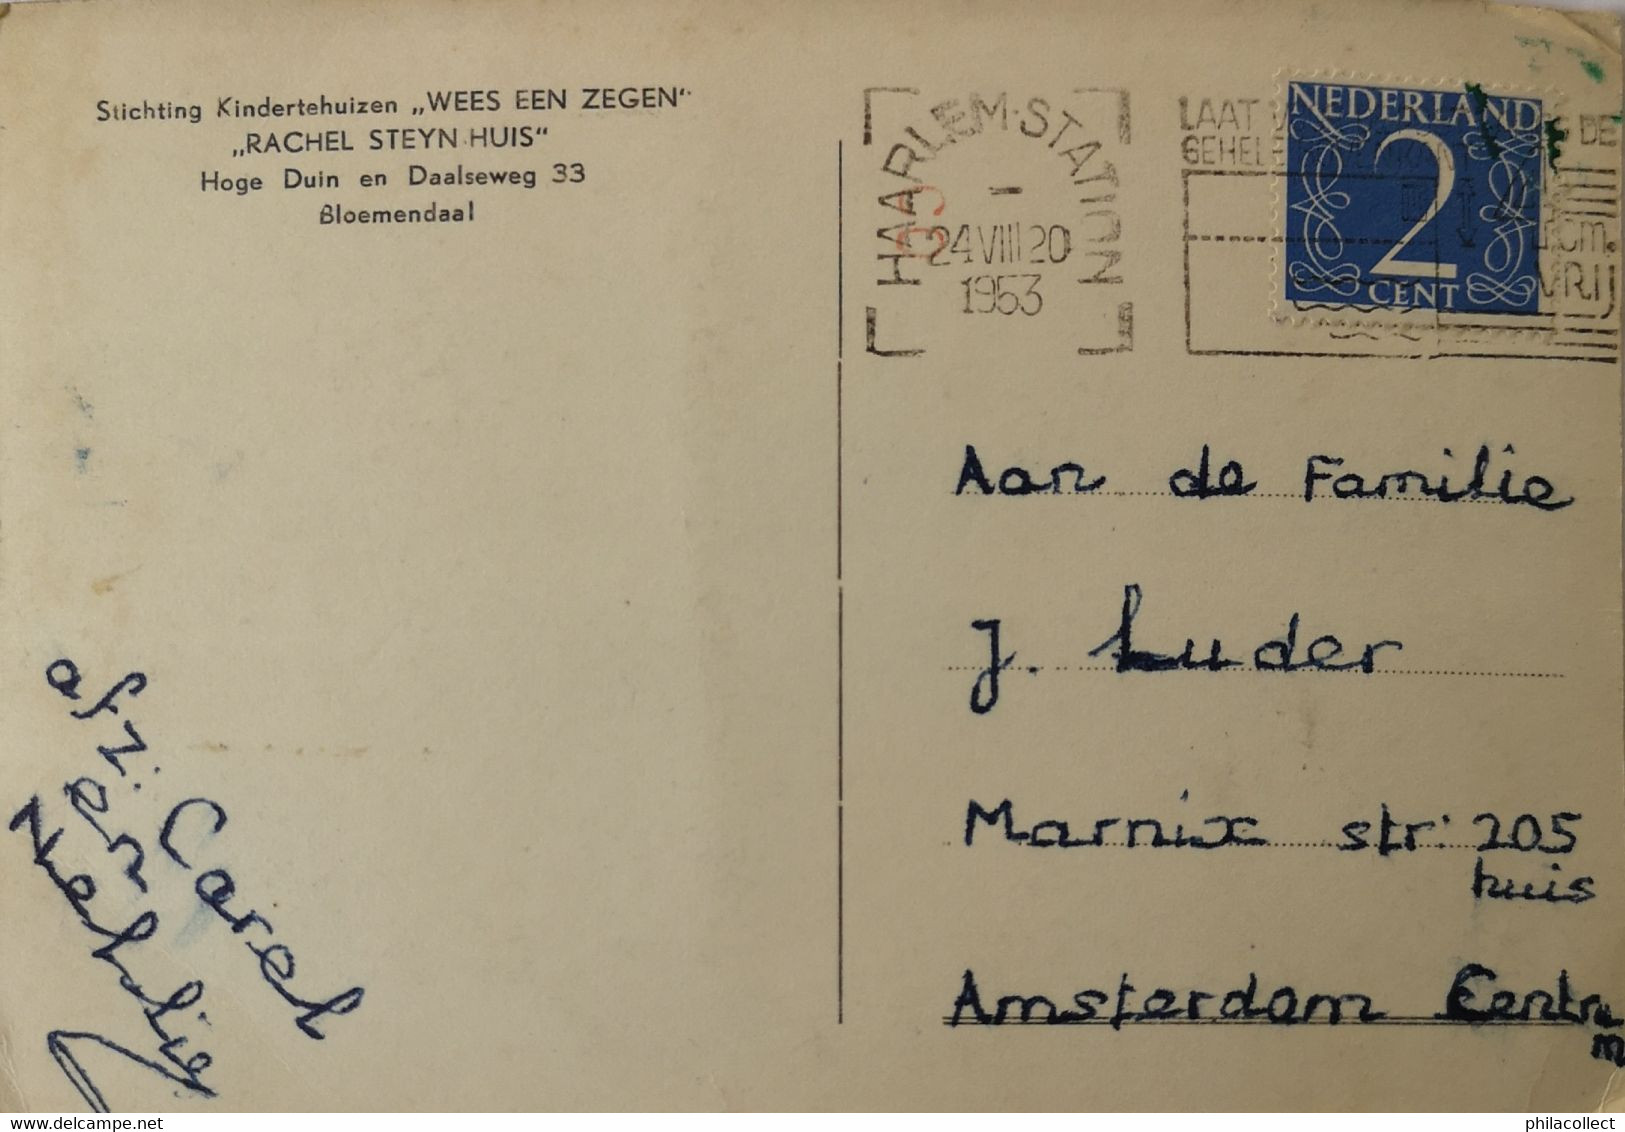 Stichting Kindertehuizen „WEES EEN ZEGEN"
„RACHEL STEYN HUIS"
Hoge Duin en Daalseweg 33
Bloemendaal
HAARLEM·STATION
24 VIII 20
1953
LAAT DE
GEHELE
CM.
VRIJ
NEDERLAND
2
CENT
Aan de Familie
J. Luder
Marnix str: 205
huis
Amsterdam Centrum
afz:
Carel
en
www.delcampe.net
philacollect